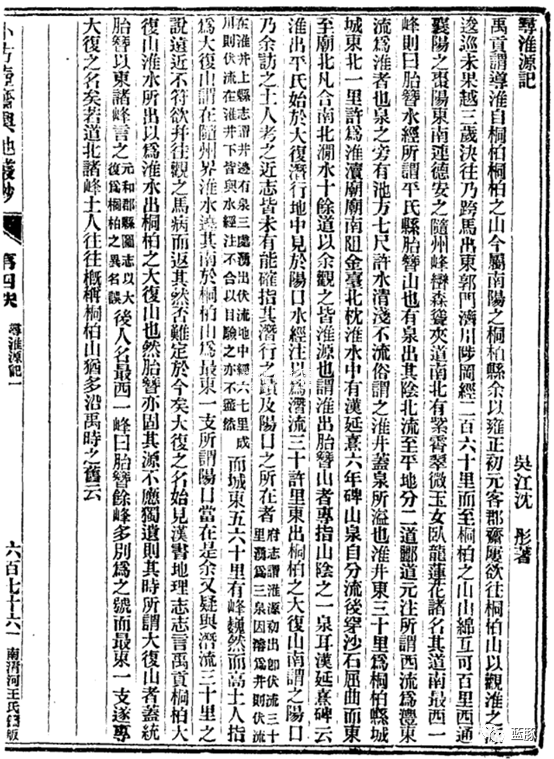 尋淮源記
吳江沈 彤著
禹貢謂導淮自桐柏桐柏之山今屬南陽之桐柏縣余以雍正初元客郡齋屢欲往桐柏山以觀淮之源
逡巡未果越三歲決往乃跨馬出東郭門濟川陟岡經二百六十里而至桐柏之山山綿亙可百里西通
襄陽之棗陽東南連德安之隨州峰巒森聳夾道南北有累霄翠微玉女臥龍蓮花諸名其道南最西一
峰則曰胎簪水經所謂平氏縣胎簪山也有泉出其陰北流至平地分二道酈道元注所謂西流為灃東
流為淮者也泉之旁有池方七尺許水清淺不流俗謂之淮井蓋泉所溢也淮井東三十里為桐柏縣城
城東北一里許為淮瀆廟廟南阻金臺北枕淮水中有漢延熹六年碑山泉自分流後穿沙石屈曲而東
至廟北凡合南北澗水十餘道以余觀之皆淮源也謂淮出胎簪山者專指山陰之一泉耳漢延熹碑云
淮出平氏始於大復潛行地中見於陽口水經注以為潛流三十許里東出桐柏之大復山南謂之陽口
乃余訪之土人考之近志皆未有能確指其潛行之蹟及陽口之所在者府志謂淮源初出卽伏流三十里湧為三泉因濬為井則伏流
在淮井上縣志謂井邊有泉三處湧出伏流地中經六七里成川則伏流在淮井下皆與水經注不合以目驗之亦不盡然而城東五六十里有峰巍然而高土人指
為大復山謂在隨州界淮水遶其南於桐柏山為最東一支所謂陽口當在是余又疑與潛流三十里之
說遠近不符欲幷往觀之馬病而返其然否難定於今矣大復之名始見漢書地理志志言禹貢桐柏大
復山淮水所出以為淮水出桐柏之大復山也然胎簪亦固其源不應獨遺則其時所謂大復山者蓋統
胎簪以東諸峰言之元和郡縣圖志以大復為桐柏之異名誤後人名最西一峰曰胎簪餘峰多別為之號而最東一支遂專
大復之名矣若道北諸峰土人往往槪稱桐柏山猶多沿禹時之舊云
小方壺齋輿地叢鈔
第四帙
尋淮源記一
六百七十六
南淸河王氏鑄版
蓝豚